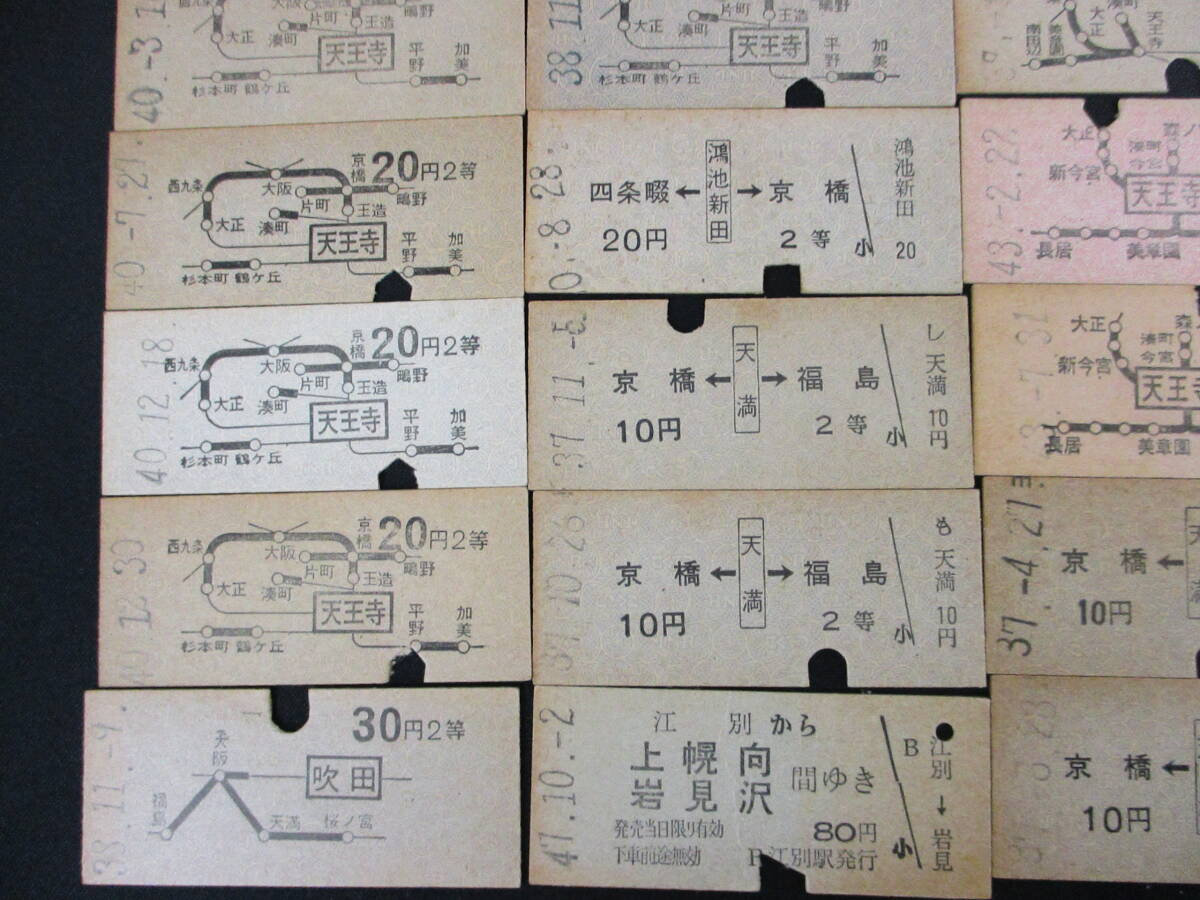 40.-3.1
大正
湊町
片町
玉造
鴫野
天王寺
平野
加美
杉本町 鶴ケ丘
40-7.21.
京橋
20円2等
西九条
大阪
片町
鴫野
大正
湊町
玉造
天王寺
平野
加美
杉本町 鶴ケ丘
40.12.18
京橋
20円2等
西九条
大阪
片町
鴫野
大正
湊町
玉造
天王寺
平野
加美
杉本町 鶴ケ丘
40.12.30
京橋
20円2等
西九条
大阪
片町
鴫野
大正
湊町
玉造
天王寺
平野
加美
杉本町 鶴ケ丘
30円2等
大阪
吹田
福島
天満
桜ノ宮
38.11
大正
湊町
片町
玉造
鴫野
天王寺
平野
加美
杉本町 鶴ケ丘
0.-8.28.
四条畷←鴻池新田→京橋
20円
2等
小
鴻池新田
20
37.11.-5.
京橋←天満→福島
10円
2等
小
し
天満
10円
37.10.26
京橋←天満→福島
10円
2等
小
も
天満
10円
47.10.-2
江別から
上幌向
岩見沢
間ゆき
発売当日限り有効
80円
下車前途無効
江別駅発行
B
小
江別→岩見
大正
天王寺
美章園
南田辺
43.-2.22.
大正
森ノ
新今宮
湊町
今宮
天王寺
長居
美章園
-7.31
大正
森
新今宮
湊町
今宮
天王寺
長居
美章園
37.-4.27
京橋←
10円
京橋←
10円